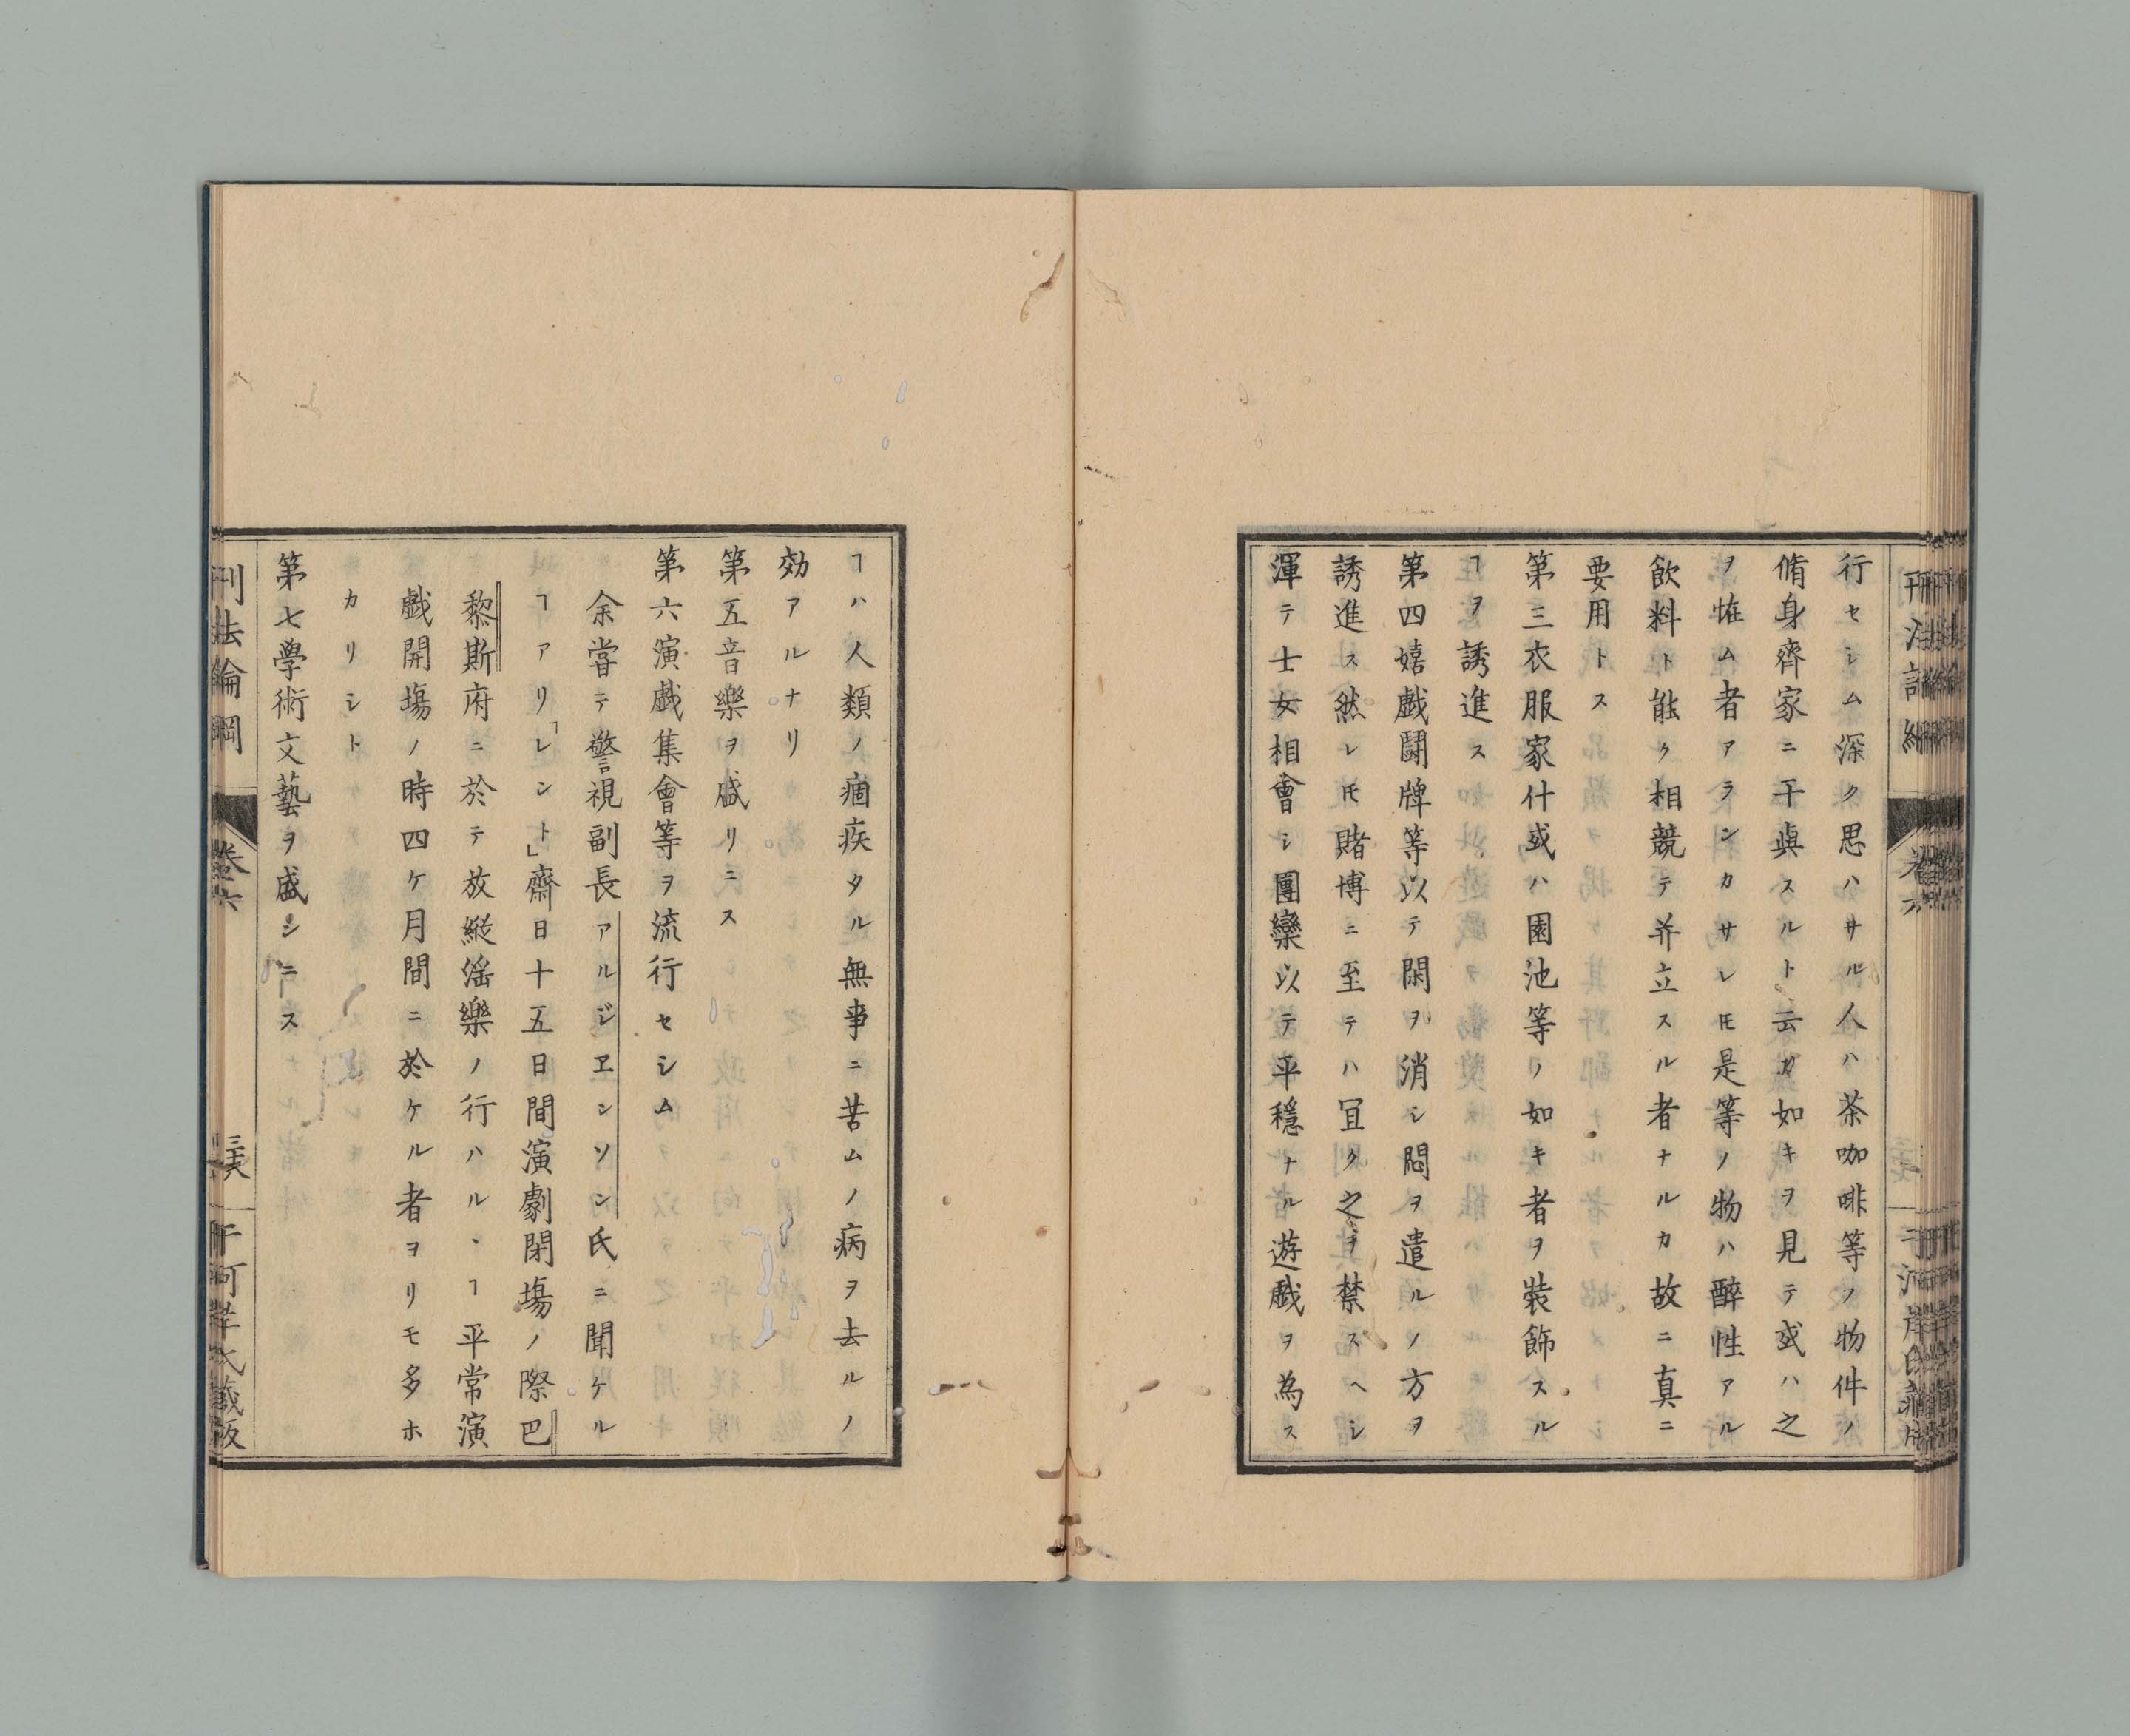 行セシム深ク思ハサル人ハ茶咖啡等ノ物件ノ
脩身齊家ニ干與スルト云カ如キヲ見テ或ハ之
ヲ恠ム者アランカサレ𪜈是等ノ物ハ醉性アル
飲料ト能ク相競テ並立スル者ナルカ故ニ真ニ
要用トス
第三衣服家什或ハ園池等ノ如キ者ヲ裝飾スル
ヿヲ誘進ス
第四嬉戲鬪牌等以テ閑ヲ消シ悶ヲ遣ルノ方ヲ
誘進ス然レ𪜈賭博ニ至テハ冝ク之ヲ禁スヘシ
渾テ士女相會シ團欒以テ平穩ナル遊戲ヲ為ス
ヿハ人類ノ痼疾タル無事ニ苦ムノ病ヲ去ルノ
効アルナリ
第五音樂ヲ盛リニス
第六演戲集會等ヲ流行セシム
余嘗テ警視副長アルジヱンソン氏ニ聞ケル
ヿアリ「レント」齋日十五日間演劇閉塲ノ際巴
黎斯府ニ於テ放縱滛樂ノ行ハルヽヿ平常演
戲開塲ノ時四ケ月間ニ於ケル者ヨリモ多ホ
カリシト
第七學術文藝ヲ盛シニス
刑法論綱
卷六
三十六
干河岸氏藏版